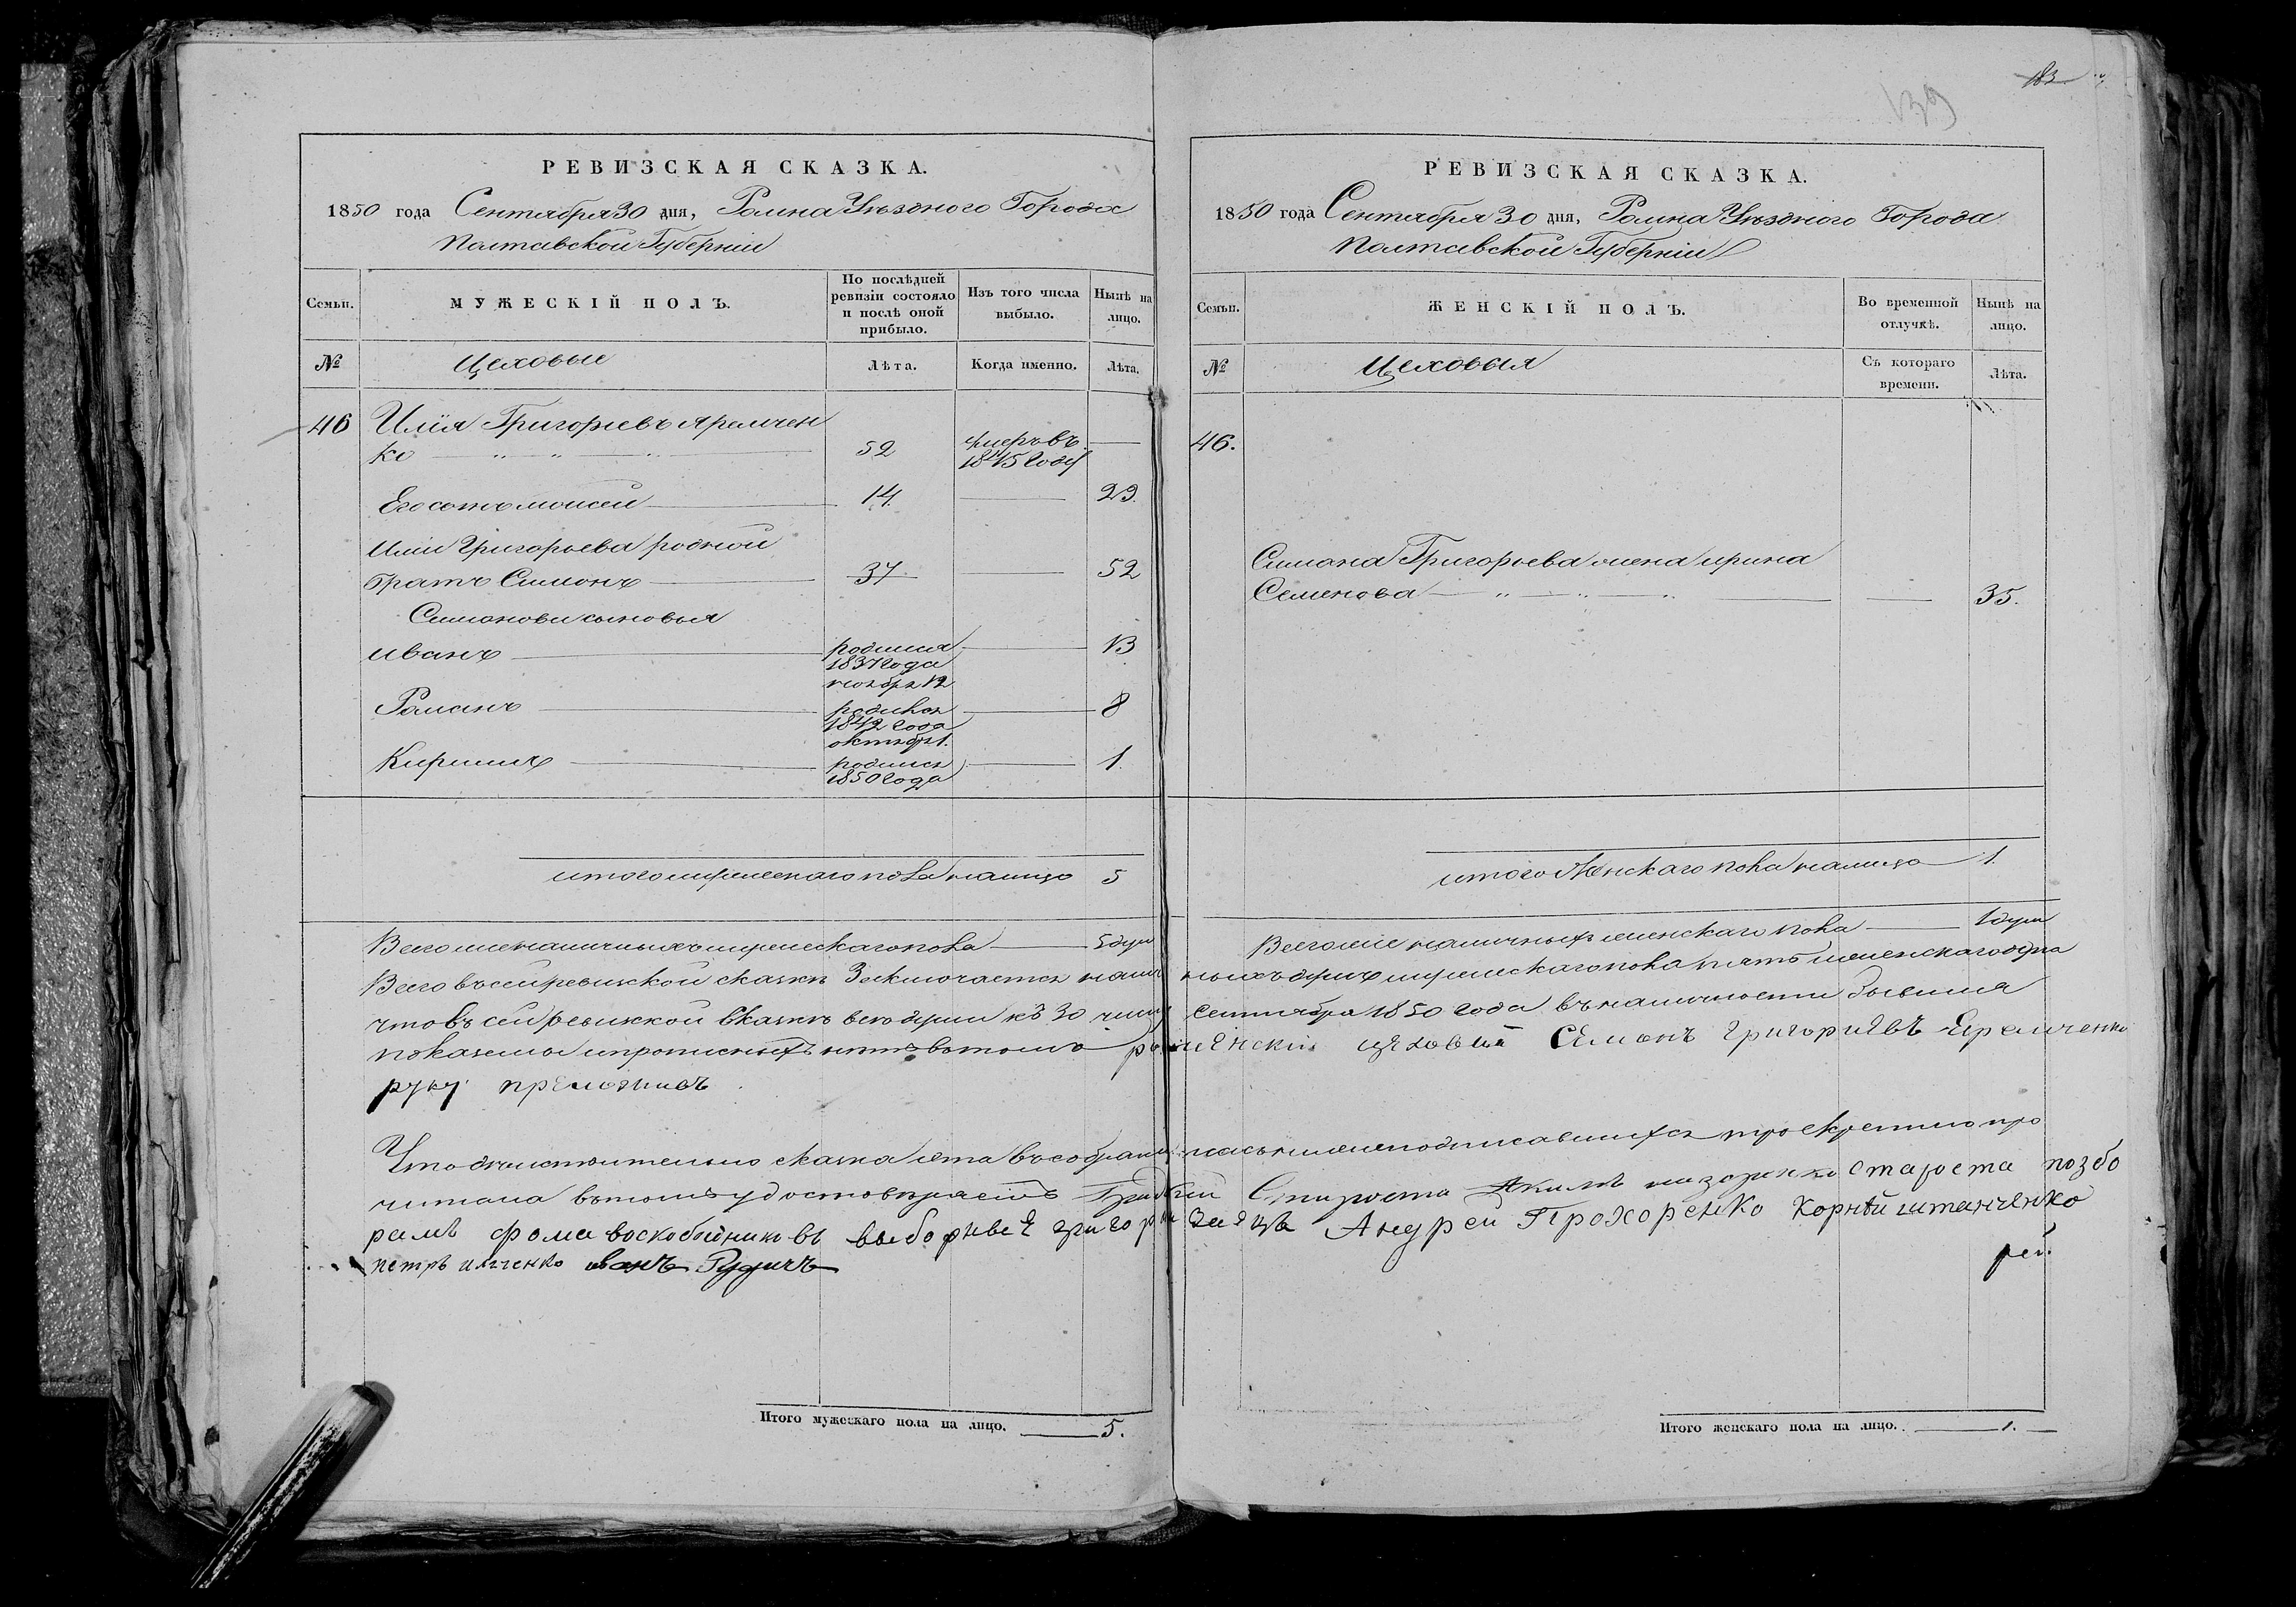 РЕВИЗСКАЯ СКАЗКА.
1850 года Сентября 30 дня, Ромна Уѣзднаго Города
Полтавской Губерніи
Семьи.
МУЖЕСКІЙ ПОЛЪ.
По послѣдней ревизіи состояло и послѣ оной прибыло.
Изъ того числа выбыло.
Нынѣ на лицо.
№
Цеховые
Лѣта.
Когда именно.
Лѣта.
46 Илія Григорьевъ Яремчен
ко 52 умеръ въ 1845 году
Его сынъ Моисей 14 29
Иліи Григорьева родной
братъ Симонъ 37 52
Симоновы сыновья
Иванъ родился 1837 года ноября 12 13
Романъ родился 1842 года октября 1. 8
Кирилъ родился 1850 года 1.
итого мужескаго пола налицо 5
Всего же наличныхъ мужескаго пола 5 душ
РЕВИЗСКАЯ СКАЗКА.
139
183
1850 года Сентября 30 дня, Ромна Уѣзднаго Города
Полтавской Губерніи
Семьи.
ЖЕНСКІЙ ПОЛЪ.
Во временной отлучкѣ.
Нынѣ на лицо.
№
Цеховыя
Съ котораго времени.
Лѣта.
46.
Симона Григорьева жена Ирина
Семенова 35.
итого Женскаго пола налицо 1.
Всего же наличныхъ женскаго пола 1 душа
Всего въ сей ревизской сказкѣ Заключается наличныхъ душъ мужескаго пола пять женскаго одна
что въ сей ревизской сказкѣ все души къ 30 числу Сентября 1850 года въ наличности бывшия
показаны и прописныхъ нѣтъ въ томъ роменский цеховий Семонъ григориевъ Еремченко
руку преложивъ
Что дѣйствительно сказка эта въ собрании насъ нижеподписавшихся по секретно про
читана въ томъ удостовѣряетъ Староста Якимъ староста позбо
рамъ фома воскобойниковъ выборные григори Заецъ Андрей Прохоренко Корнѣй
петръ илченко иванъ Рудичъ
Итого мужескаго пола на лицо. 5.
Итого женскаго пола на лицо. 1.